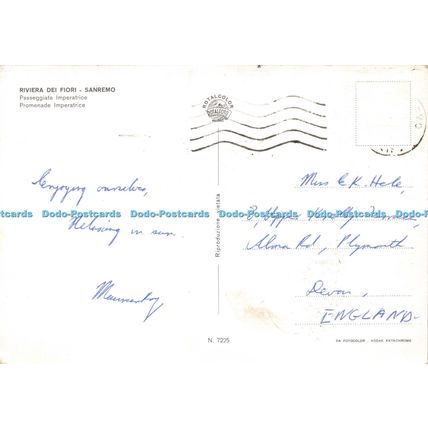 RIVIERA DEI FIORI - SANREMO
Passeggiata Imperatrice
Promenade Imperatrice
ROTALCOLOR
ROTALFOTO
Enjoying ourselves,
Relaxing in sun.
Miss C.K. Hele,
Alma Rd, Plymouth
Devon,
ENGLAND-
Dodo-Postcards Dodo-Postcards Dodo-Postcards Dodo-Postcards
Riproduzione vietata
N. 7225
DA FOTOCOLOR KODAK EKTACHROME